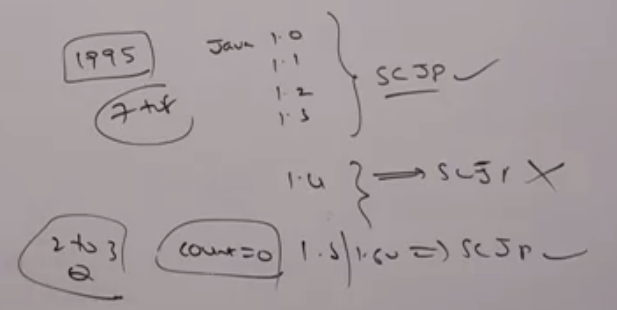 1995
Java 1.0
1.1
1.2
1.3
SCJP ✓
7 to 8
1.4 } => SCJP X
2 to 3
Q
count=0
1.5/1.6v => SCJP ✓